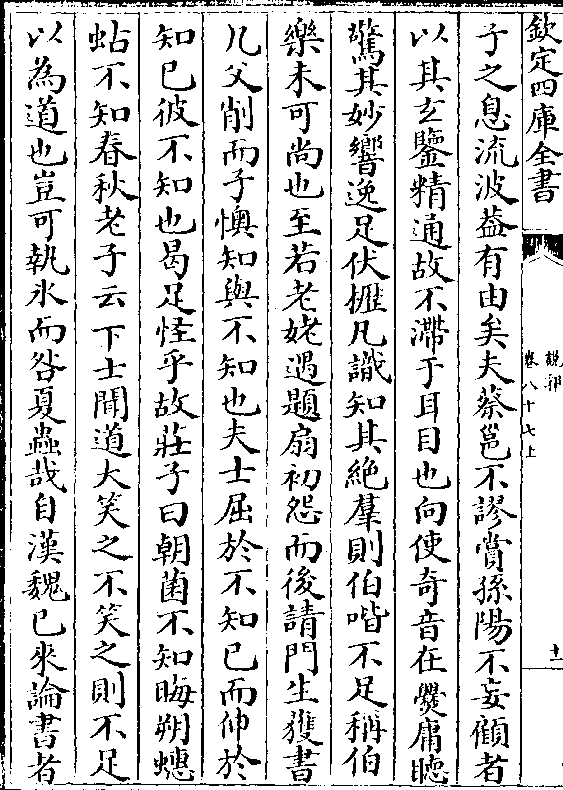 欽定四庫全書
說郛
卷八十七上
十一
子之息流波葢有由矣夫蔡邕不謬賞孫陽不妄顧者
以其玄鑒精通故不滯于耳目也向使奇音在爨庸聽
驚其妙響逸足伏櫪凡識知其絶羣則伯喈不足稱伯
樂未可尚也至若老姥遇題扇初怨而後請門生獲書
几父削而子懊知與不知也夫士屈於不知已而伸於
知已彼不知也曷足怪乎故莊子曰朝菌不知晦朔蟪
蛄不知春秋老子云下士聞道大笑之不笑之則不足
以為道也豈可執氷而咎夏蟲哉自漢魏已來論書者